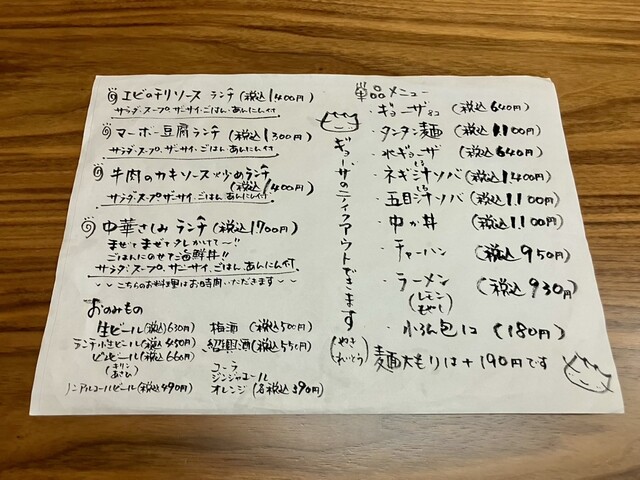 エビのチリソース ランチ (税込1400円)
サラダ・スープ・ザーサイ・ごはん・あんにん付
マーボー豆腐ランチ (税込1300円)
サラダ・スープ・ザーサイ・ごはん・あんにん付
牛肉のカキソース炒めランチ
(税込1400円)
サラダ・スープ・ザーサイ・ごはん・あんにん付
中華さしみ ランチ (税込1700円)
まぜてまぜてタレかけて〜!!
ごはんにのせてご海鮮丼!!
サラダ・スープ・ザーサイ・ごはん・あんにん付
こちらのお料理はお時間いただきます
おのみもの
生ビール(税込630円)
ランチ小生ビール(税込450円)
ビンビール(税込660円)
(きりん
あさひ)
ノンアルコールビール(税込490円)
梅酒 (税込500円)
紹興酒(税込550円)
コーラ
ジンジャエール
オレンジ (各税込390円)
ギョーザのテイクアウトできます
(やき
れいとう)
単品メニュー
・ギョーザ8コ (税込640円)
・タンタン麺 (税込1,100円)
・水ギョーザ (税込640円)
・ネギ汁ソバ (税込1400円)
・五目汁ソバ (税込1,100円)
・中か丼 (税込1,100円)
・チャーハン (税込950円)
・ラーメン (税込930円)
(レモン
もやし)
・小ろん包1コ (180円)
麺大もりは+190円です